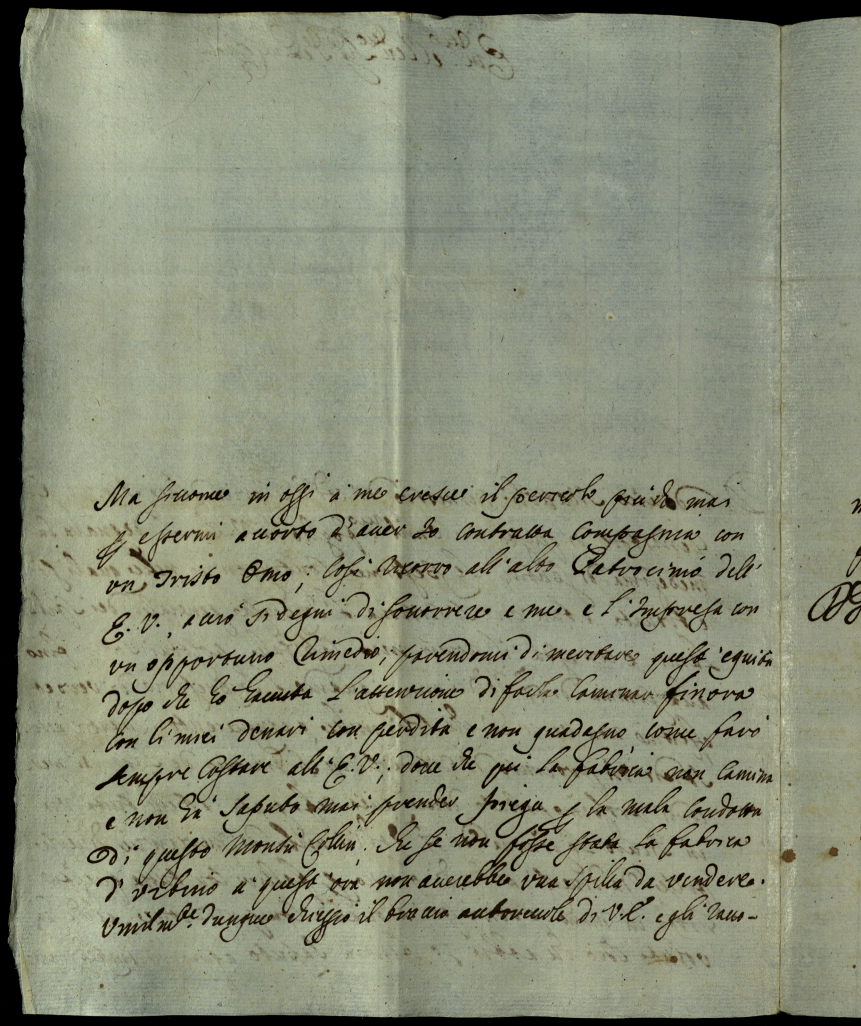 Ma siccome in oggi à me cresce il pericolo più che mai
p essermi accorto d'aver Io contratta Compagnia con
un Tristo Omo; Così ricorro all'alto Patrocinio dell'
E. V., acciò si degni di soccorrere e me e l'Impresa con
un opportuno rimedio, parendomi di meritare quest'equità
dopo che hò hauuta l'attenzione di farla Caminar finora
con li miei denari con perdita e non guadagno come farò
sempre Costare all'E. V.; doue che qui la fabrica non Camina
e non hà saputo mai prender piega p la mala condotta
di questo Monsù Collin. Che se non fosse stata la fabrica
d'urbino a quest'ora non auerebbe una spilla da vendere.
Umilmte. dunque chieggio il braccio autoreuole di V. E. e gli racco-